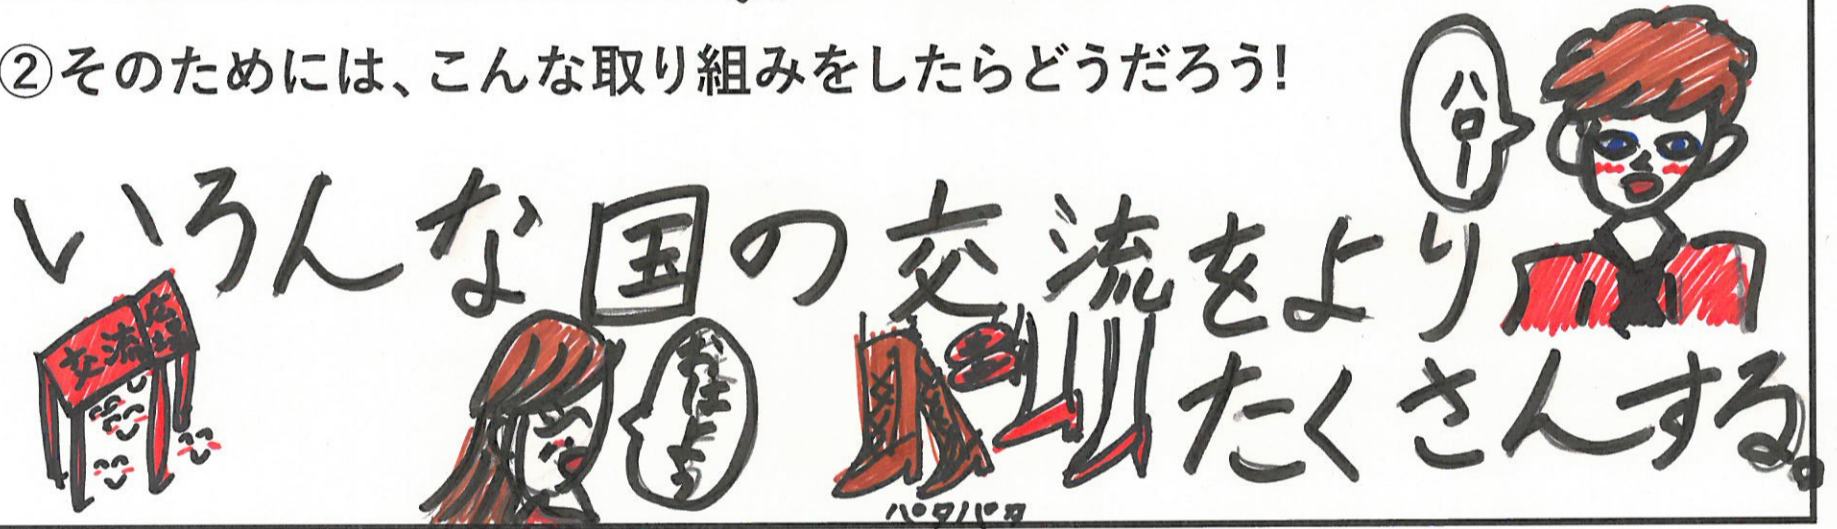 ②そのためには、こんな取り組みをしたらどうだろう!
ハロー
いろんな国の交流をより
たくさんする。
交流広場
おはよう
パタパタ